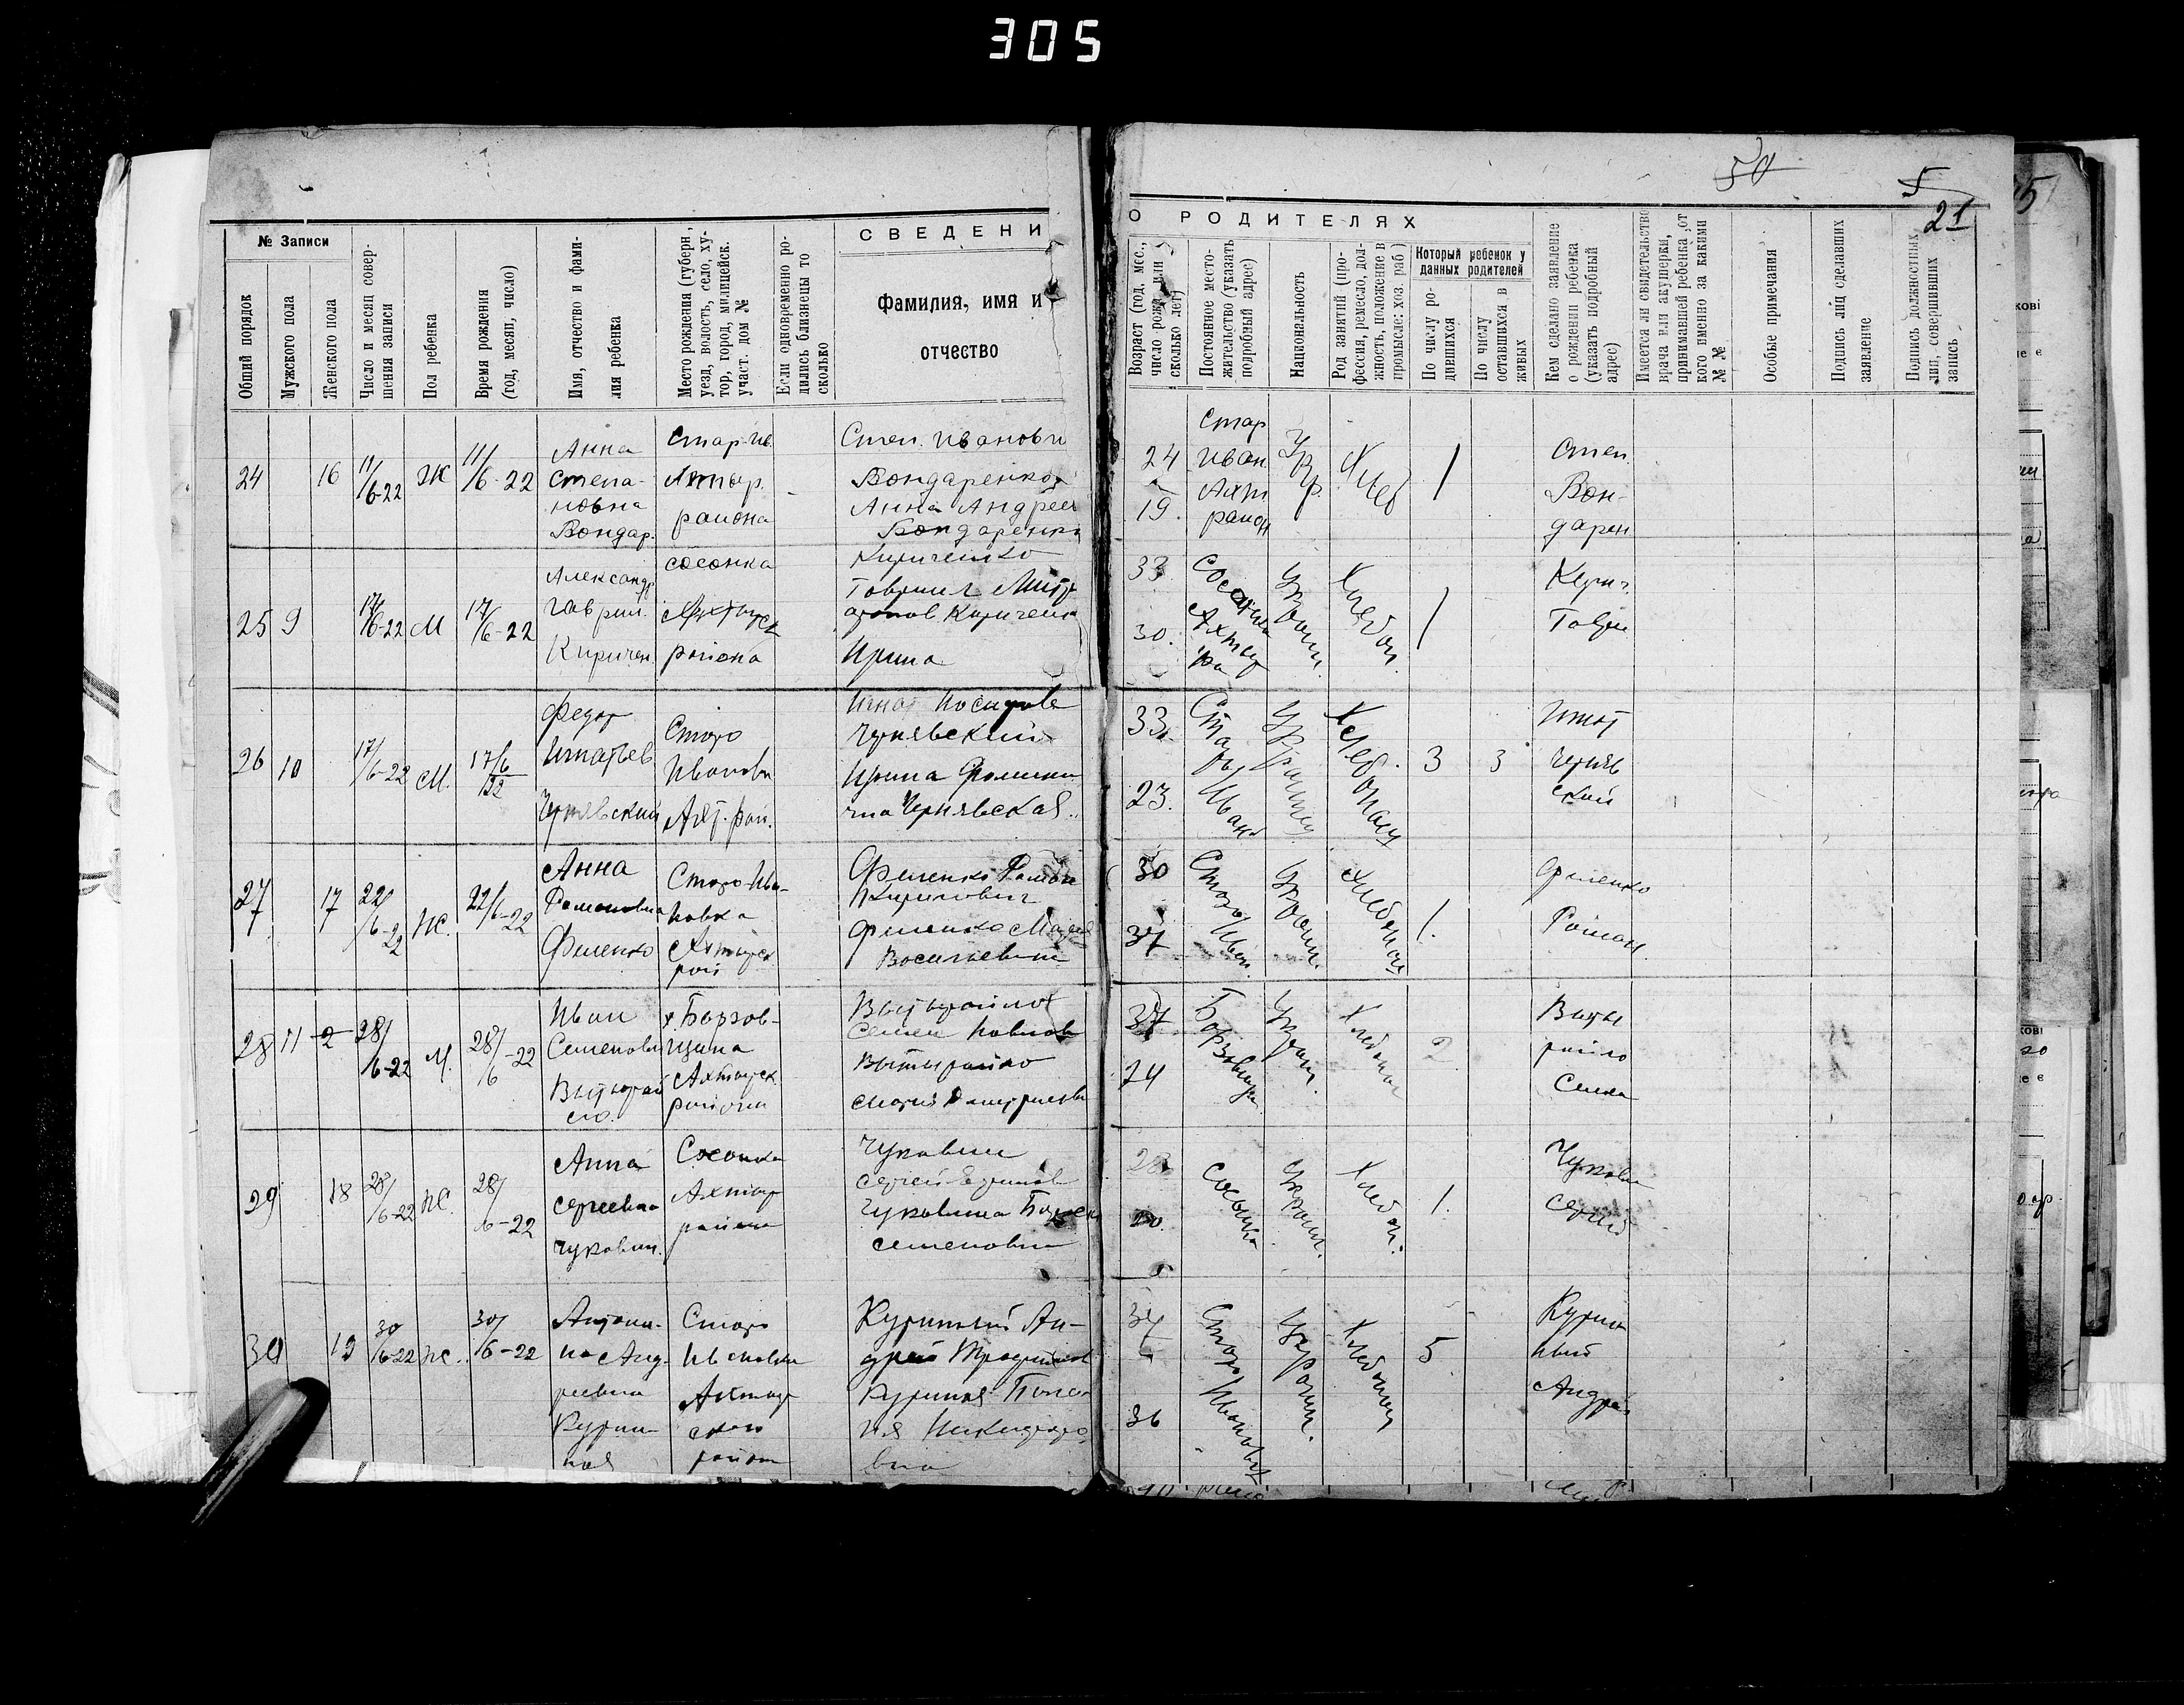 305
50
5
21
15
СВЕДЕНИ
О РОДИТЕЛЯХ
№ Записи
Общий порядок
Мужского пола
Женского пола
Число и месяц совер-
шения записи
Пол ребенка
Время рождения
(год, месяц, число)
Имя, отчество и фами-
лия ребенка
Место рождения (губерн.,
уезд, волость, село, ху-
тор, город, милицейск.
участ. дом №
Если одновременно ро-
дились близнецы то
сколько
Фамилия, имя и
отчество
Возраст (год, мес.,
число рожд. или
сколько лет)
Постоянное место-
жительство (указать
подробный адрес)
Национальность
Род занятий (про-
фессия, ремесло, дол-
жность, положение в
промысле: хоз. раб)
Который ребенок у
данных родителей
По числу ро-
дившихся
По числу
оставшихся в
живых
Кем сделано заявление
о рождении ребенка
(указать подробный
адрес)
Имеется ли свидетельство
врача или акушерки,
принимавшей ребенка, от
кого именно за какими
№ №
Особые примечания
Подпись лиц сделавших
заявление
Подпись должностных
лиц, совершивших
запись
24
16
11/6-22
Ж
11/6-22
Анна
Степа-
новна
Бондар.
Стар-Ив
Ахтыр.
района
-
Степ. Иванови
Бондаренко
Анна Андрее
Бондаренко
24
19.
Стар
Иван
Ахт
район
Укр.
Хлеб
1
Степ.
Бон-
дарен
25
9
17/6-22
М
17/6-22
Александр
Гаврил.
Киричен.
Сосонка
Ахтырск
района
Кириченко
Гавриил Митр
Киричен
Ирина
33
30.
Сосонка
Ахтыр
ра
Украин.
Хлебоп.
1
Кирич.
Гаври
26
10
17/6-22
М.
17/6
22
Федор
Игнатьев
Чернявский
Старо
Иванов
Ахт. рай.
Игнат
Чернявский
Ирина
Чернявская.
33
23.
Стар. Иван
Украин
Хлебопаш
3
3
Игнат
Черняв
ский
27
17
22/6-22
Ж.
22/6-22
Анна
Романовна
Филенко
Старо-Ива-
новка
Ахтырск
рай
Филенко Роман
Кирилович
Филенко Мария
Васильевна
30
37
Старо Иван.
Украин.
Хлебопаш
1.
Филенко
Роман.
28
11
2
28/6-22
М.
28/6-22
Иван
Семенович
х. Борзов-
щина
Ахтырск
района
Семен Павлов
37
24
Борзовщин
Украин.
Хлебопаш
2
Семен
29
18
28/6-22
Ж.
28/6-22
Анна
Сергеевна
Чуковин.
Сосонка
Ахтыр
района
Чуковин
Сергей Ефимов
Чуковина
Семеновна
28
20.
Сосонка
Украин.
Хлебоп.
1.
Чукови
Сергей
30
19
30/6-22
Ж.
30/6-22
Антони-
на Анд-
реевна
Курин-
ная
Старо
Ивановка
Ахтыр
ского
район
Куринный Ан-
дрей
Куринная Пела
гея Никифоро
вна
34
36
Старо Ивановка
Украин.
Хлебопаш
5
Курин
ный
Андрей